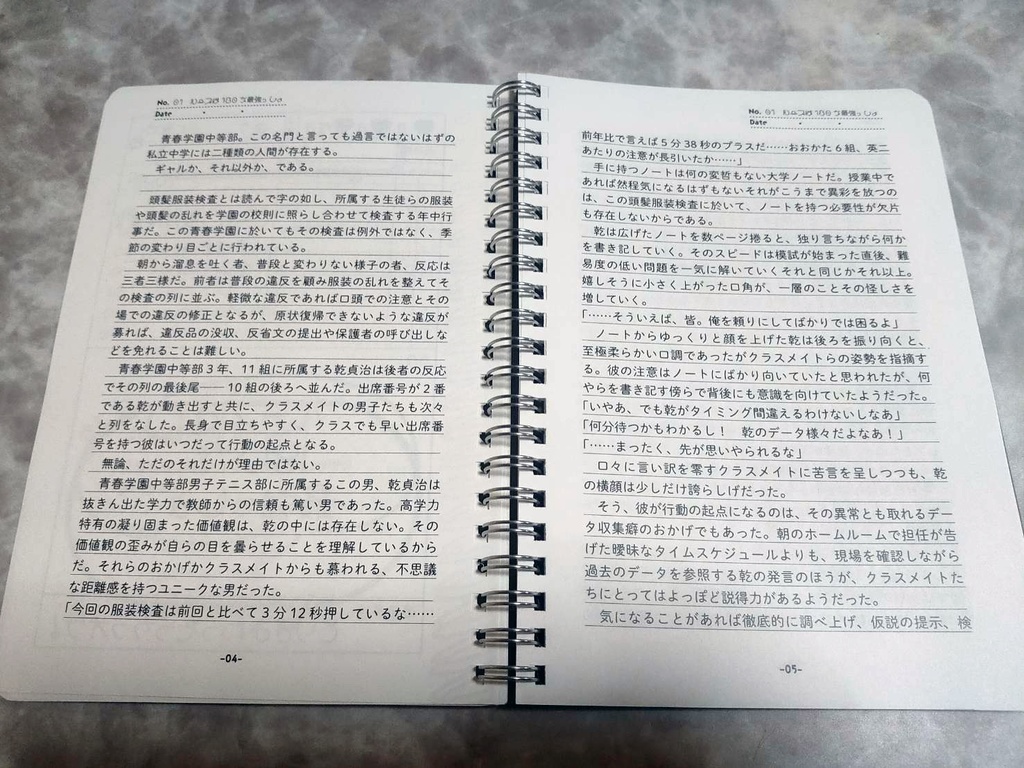 No. 01
Date
青春学園中等部。この名門と言っても過言ではないはずの
私立中学には二種類の人間が存在する。
ギャルか、それ以外か、である。
頭髪服装検査とは読んで字の如し、所属する生徒らの服装
や頭髪の乱れを学園の校則に照らし合わせて検査する年中行
事だ。この青春学園に於いてもその検査は例外ではなく、季
節の変わり目ごとに行われている。
朝から溜息を吐く者、普段と変わりない様子の者、反応は
三者三様だ。前者は普段の違反を顧み服装の乱れを整えてそ
の検査の列に並ぶ。軽微な違反であれば口頭での注意とその
場での違反の修正となるが、原状復帰できないような違反が
募れば、違反品の没収、反省文の提出や保護者の呼び出しな
どを免れることは難しい。
青春学園中等部3年、11組に所属する乾貞治は後者の反応
でその列の最後尾――10組の後ろへ並んだ。出席番号が2番
である乾が動き出すと共に、クラスメイトの男子たちも次々
と列をなした。長身で目立ちやすく、クラスでも早い出席番
号を持つ彼はいつだって行動の起点となる。
無論、ただのそれだけが理由ではない。
青春学園中等部男子テニス部に所属するこの男、乾貞治は
抜きん出た学力で教師からの信頼も篤い男であった。高学力
特有の凝り固まった価値観は、乾の中には存在しない。その
価値観の歪みが自らの目を曇らせることを理解しているから
だ。それらのおかげかクラスメイトからも慕われる、不思議
な距離感を持つユニークな男だった。
「今回の服装検査は前回と比べて3分12秒押しているな……
-04-
No. 01
Date
前年比で言えば5分38秒のプラスだ……おおかた6組、英二
あたりの注意が長引いたか……」
手に持つノートは何の変哲もない大学ノートだ。授業中で
あれば然程気になるはずもないそれがこうまで異彩を放つの
は、この頭髪服装検査に於いて、ノートを持つ必要性が欠片
も存在しないからである。
乾は広げたノートを数ページ捲ると、独り言ちながら何か
を書き記していく。そのスピードは模試が始まった直後、難
易度の低い問題を一気に解いていくそれと同じかそれ以上。
嬉しそうに小さく上がった口角が、一層のことその怪しさを
増していく。
「……そういえば、皆。俺を頼りにしてばかりでは困るよ」
ノートからゆっくりと顔を上げた乾は後ろを振り向くと、
至極柔らかい口調であったがクラスメイトらの姿勢を指摘す
る。彼の注意はノートにばかり向いていたと思われたが、何
やらを書き記す傍らで背後にも意識を向けていたようだった。
「いやあ、でも乾がタイミング間違えるわけないしなあ」
「何分待つかもわかるし!　乾のデータ様々だよなあ!」
「……まったく、先が思いやられるな」
口々に言い訳を零すクラスメイトに苦言を呈しつつも、乾
の横顔は少しだけ誇らしげだった。
そう、彼が行動の起点になるのは、その異常とも取れるデー
タ収集癖のおかげでもあった。朝のホームルームで担任が告
げた曖昧なタイムスケジュールよりも、現場を確認しながら
過去のデータを参照する乾の発言のほうが、クラスメイトた
ちにとってはよっぽど説得力があるようだった。
気になることがあれば徹底的に調べ上げ、仮説の提示、検
-05-